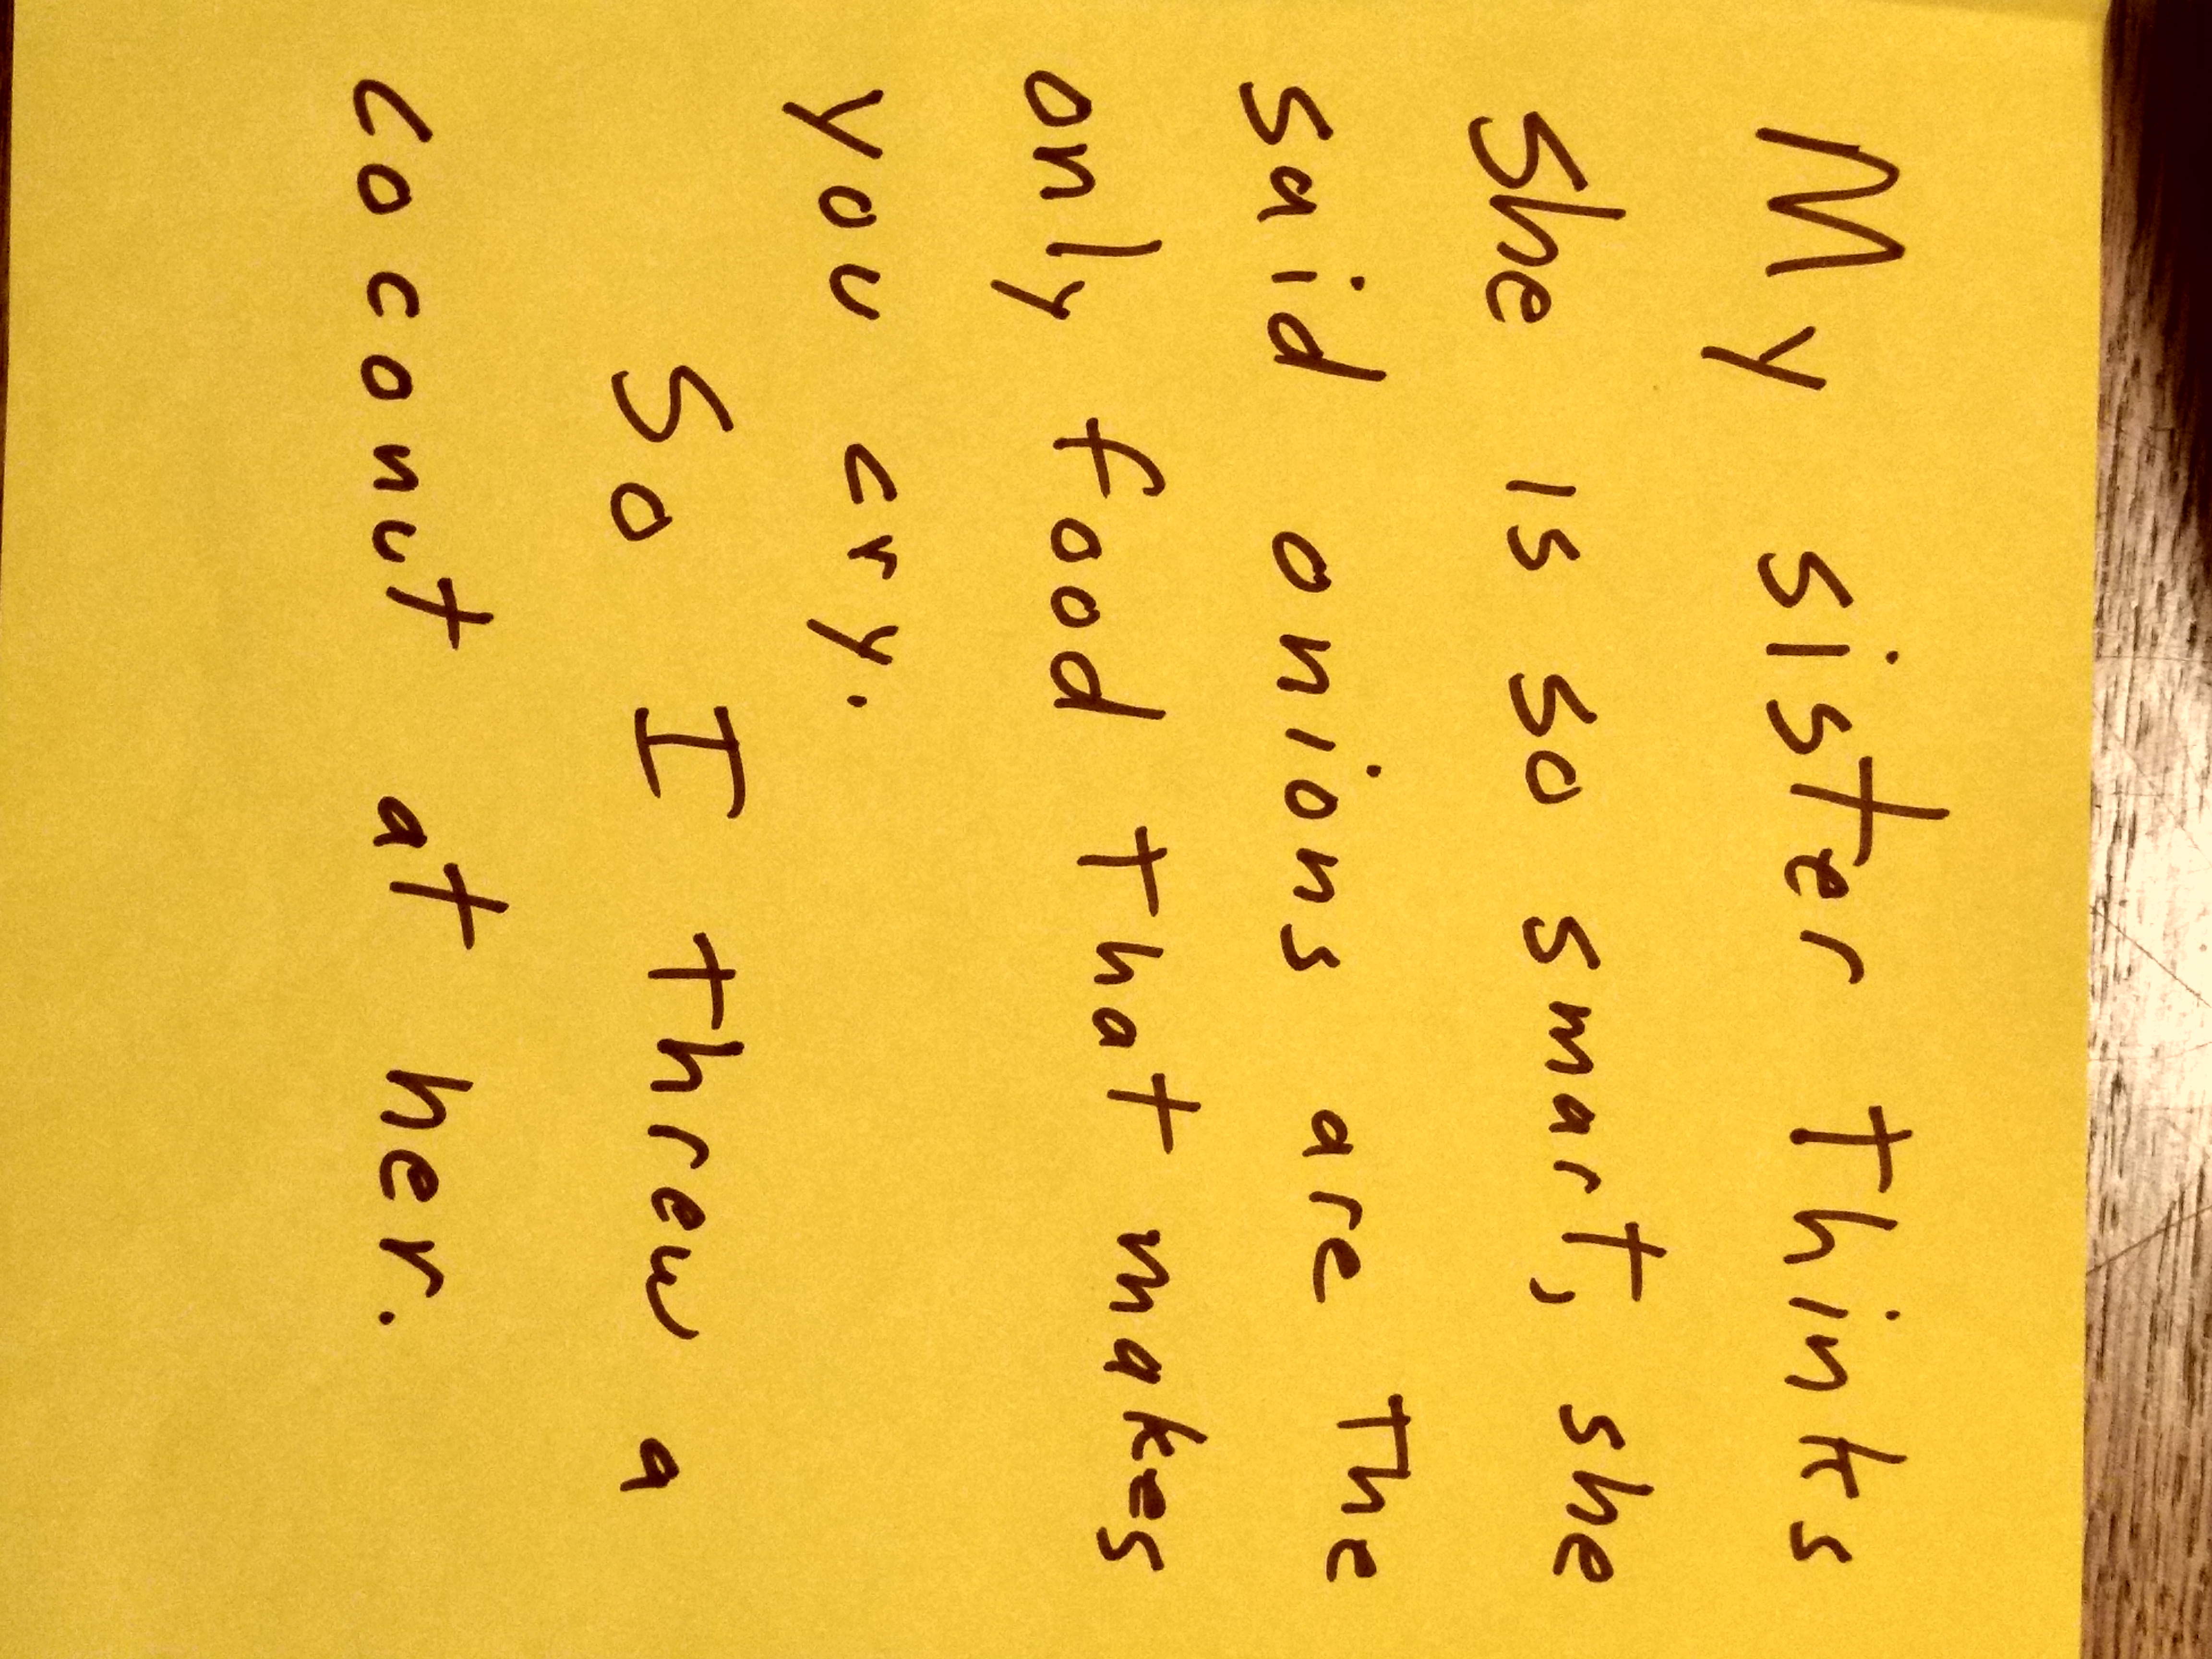 My sister Thinks
She is so smart, she
said onions are The
only food That makes
you cry.
So I threw a
coconut at her.